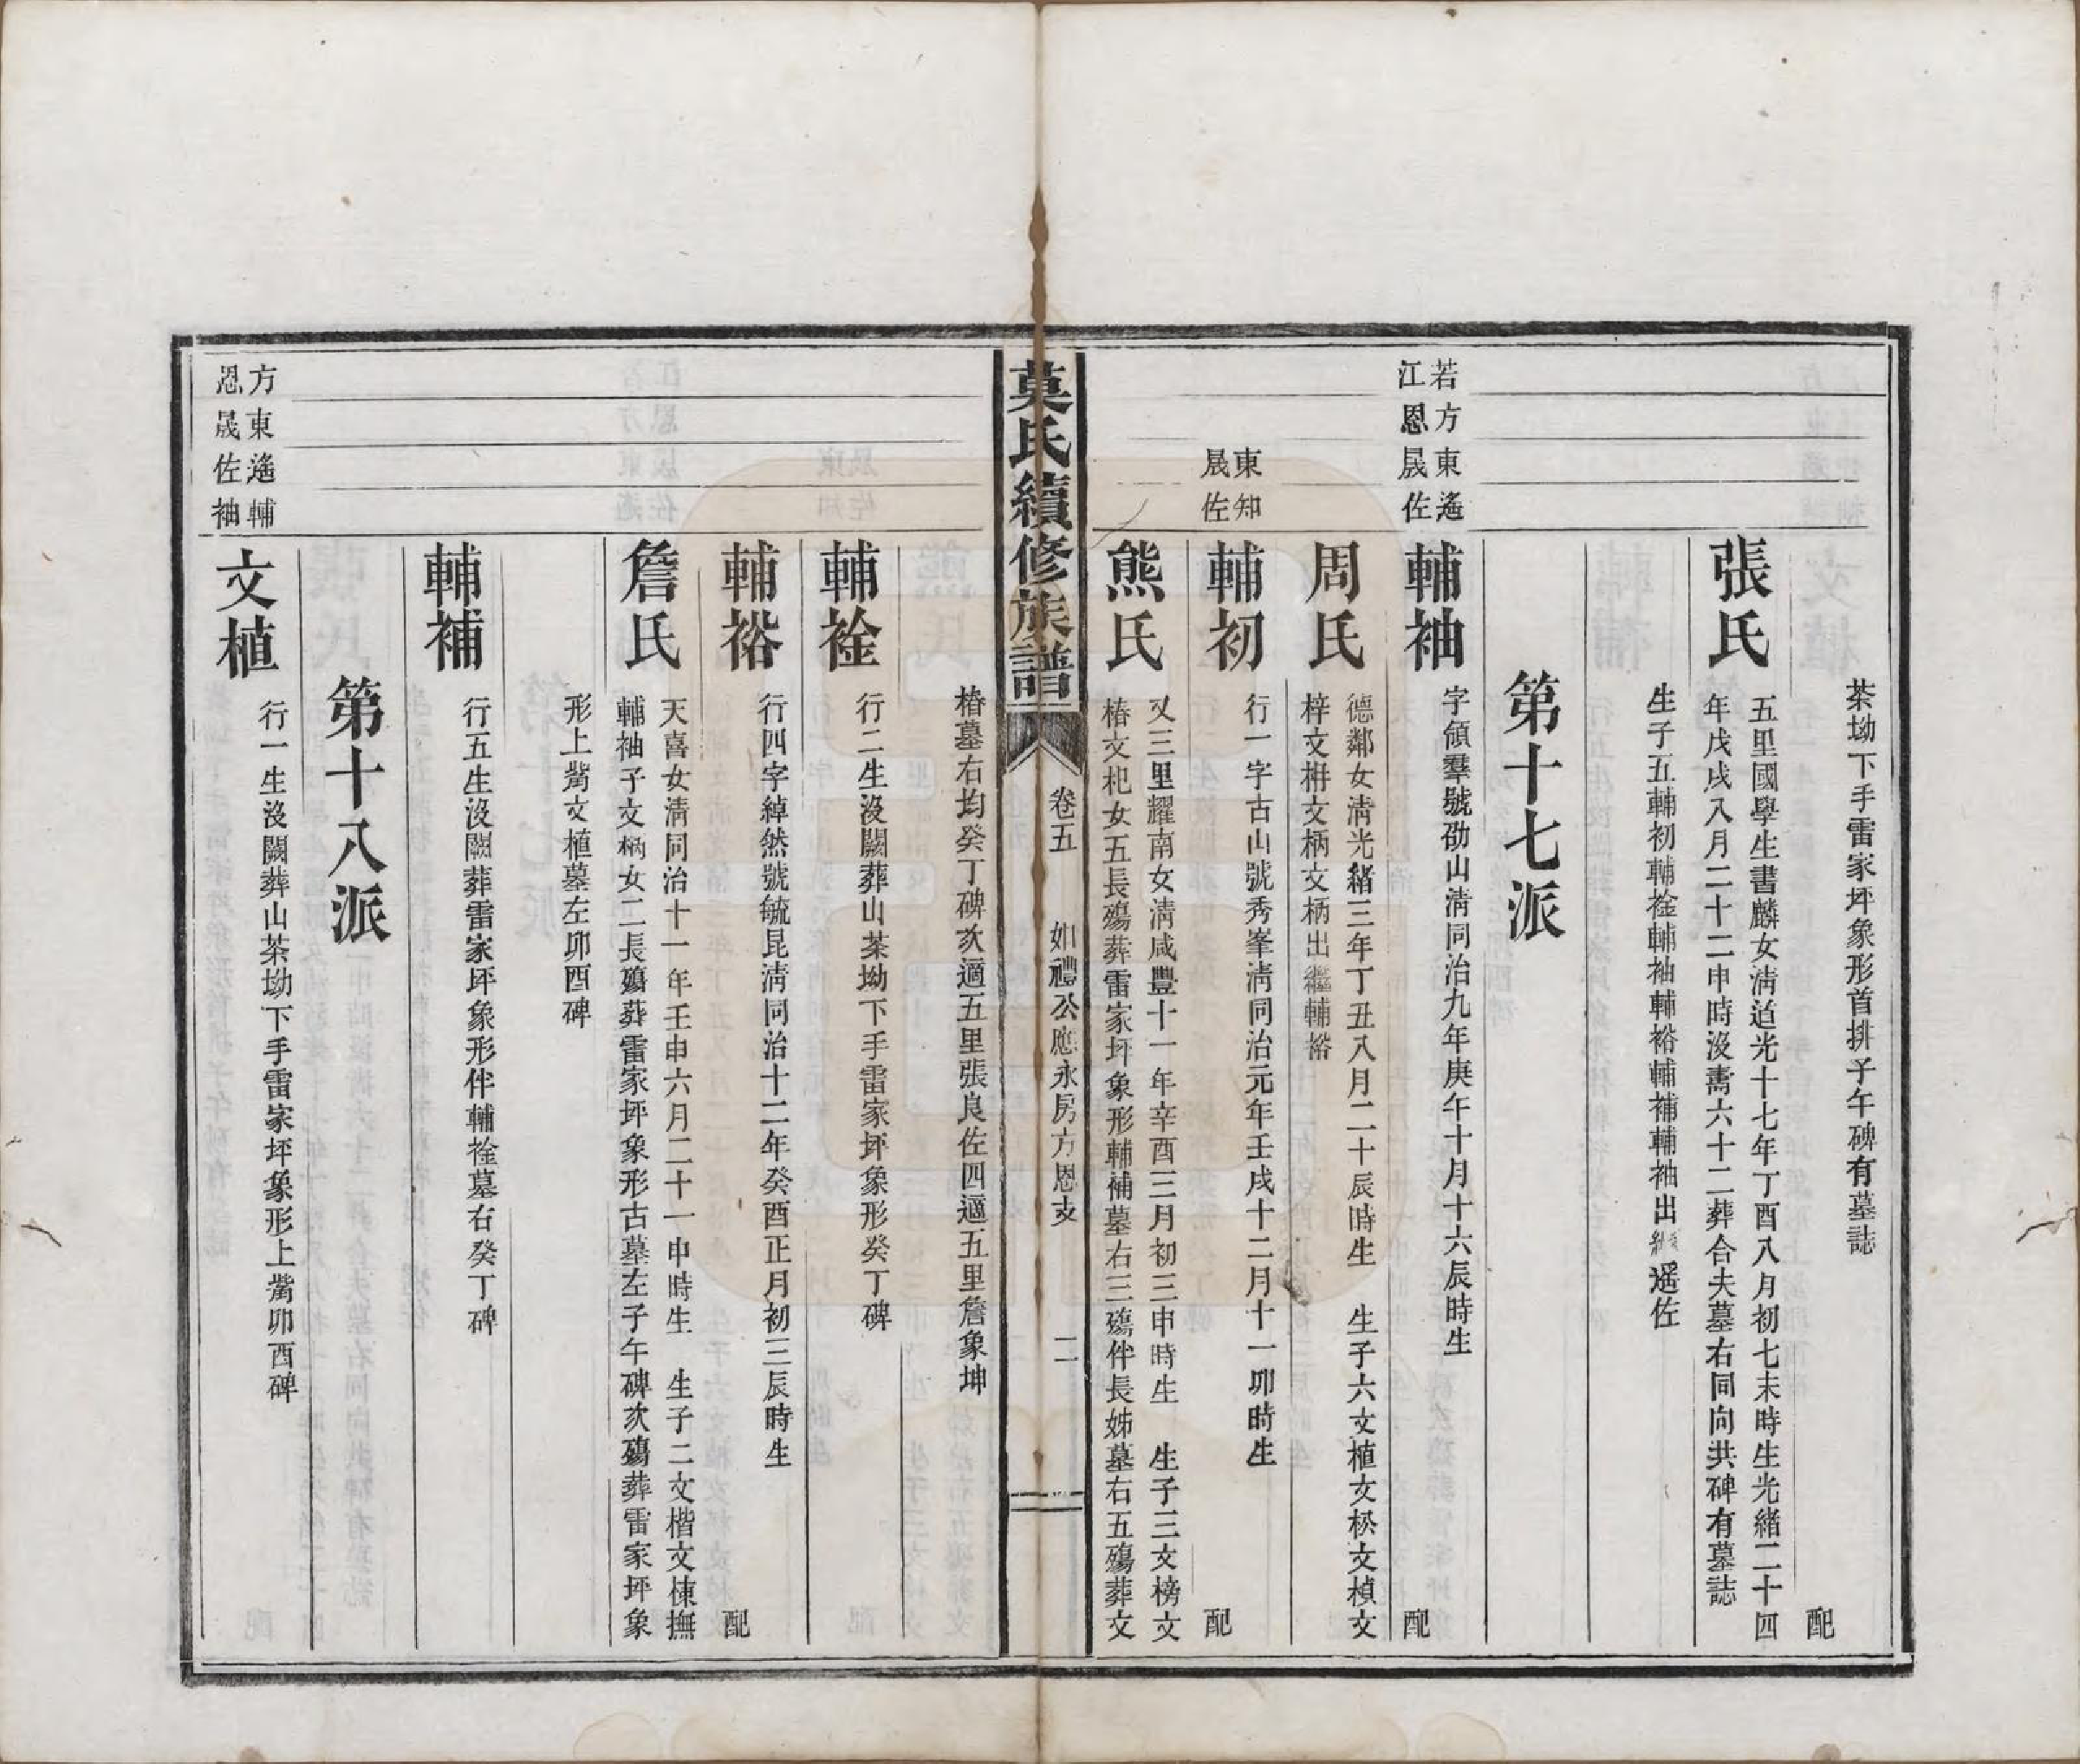 茶坳下手雷家坪象形首排子午碑有墓誌
配
張氏
五里國學生書麟女淸道光十七年丁酉八月初七未時生光緒二十四
年戊戌八月二十二申時沒壽六十二葬合夫墓右同向共碑有墓誌
生子五輔初輔袵輔袖輔裕輔補輔袖出繼遥佐
第十七派
若方東遙
江恩晟佐
輔袖
字領羣號劭山淸同治九年庚午十月十六辰時生
配
周氏
德鄰女淸光緒三年丁丑八月二十辰時生 生子六文植文桚文楨文
梓文枏文柄文柄出繼輔裕
東知
晟佐
輔初
行一字古山號秀峯淸同治元年壬戌十二月十一卯時生
配
熊氏
又三里耀南女淸咸豐十一年辛酉三月初三申時生 生子三文榜文
椿文杞女五長殤葬雷家坪象形輔補墓右三殤伴長姊墓右五殤葬文
莫氏續修族譜
卷五
如禮公應永房方恩支
二
椿墓右均癸丁碑次適五里張良佐四適五里詹象坤
輔袵
行二生沒闕葬山茶坳下手雷家坪象形癸丁碑
輔裕
行四字綽然號毓昆淸同治十二年癸酉正月初三辰時生
配
詹氏
天喜女淸同治十一年壬申六月二十一申時生 生子二文楷文棟撫
輔袖子文柄女二長殤葬雷家坪象形古墓左子午碑次殤葬雷家坪象
形上嘴文植墓左卯酉碑
輔補
行五生沒闕葬雷家坪象形伴輔袵墓右癸丁碑
第十八派
方東遙輔
恩晟佐袖
文植
行一生沒闕葬山茶坳下手雷家坪象形上嘴卯酉碑